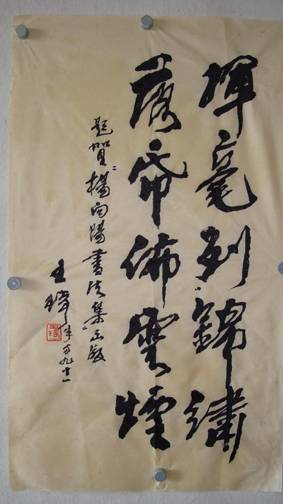 揮毫列錦繡
落帋佈雲煙
題賀楊向陽書法集出版
王
年方九十一